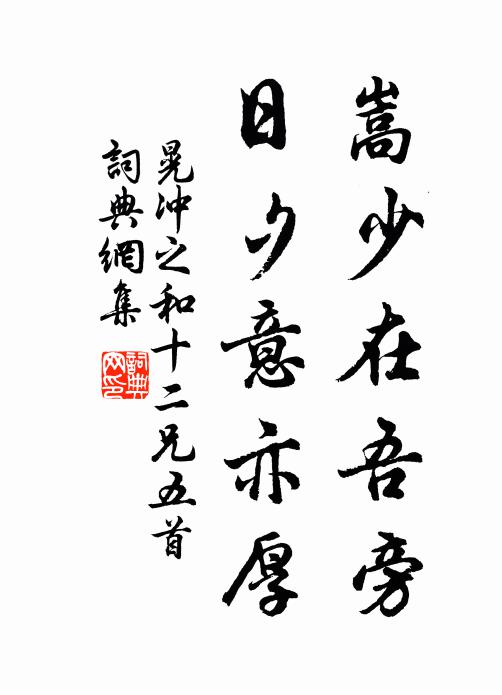 嵩少在吾旁
日夕意亦厚
晁沖之和十二兄五首
詞典網集
詞典网印